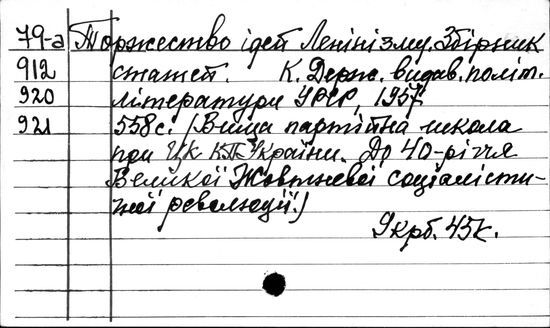 79-а Торжество ідей Ленінізму. Збірник
912 статей. К. Держ. видав. політ.
920 літератури УРСР, 1957
921 558с. (Вища партійна школа
при ЦК КП України. До 40-річчя
Великої Жовтневої соціалісти-
чної революції.)
9крб. 45к.